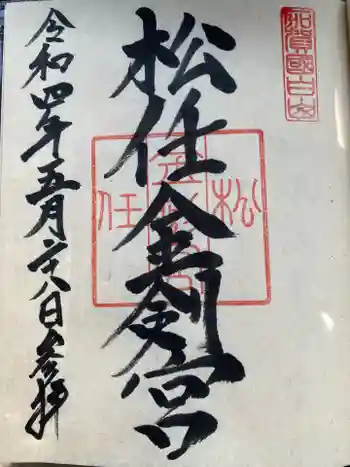 加賀國白山
松任金剱宮
松任
令和四年五月二十八日参拝